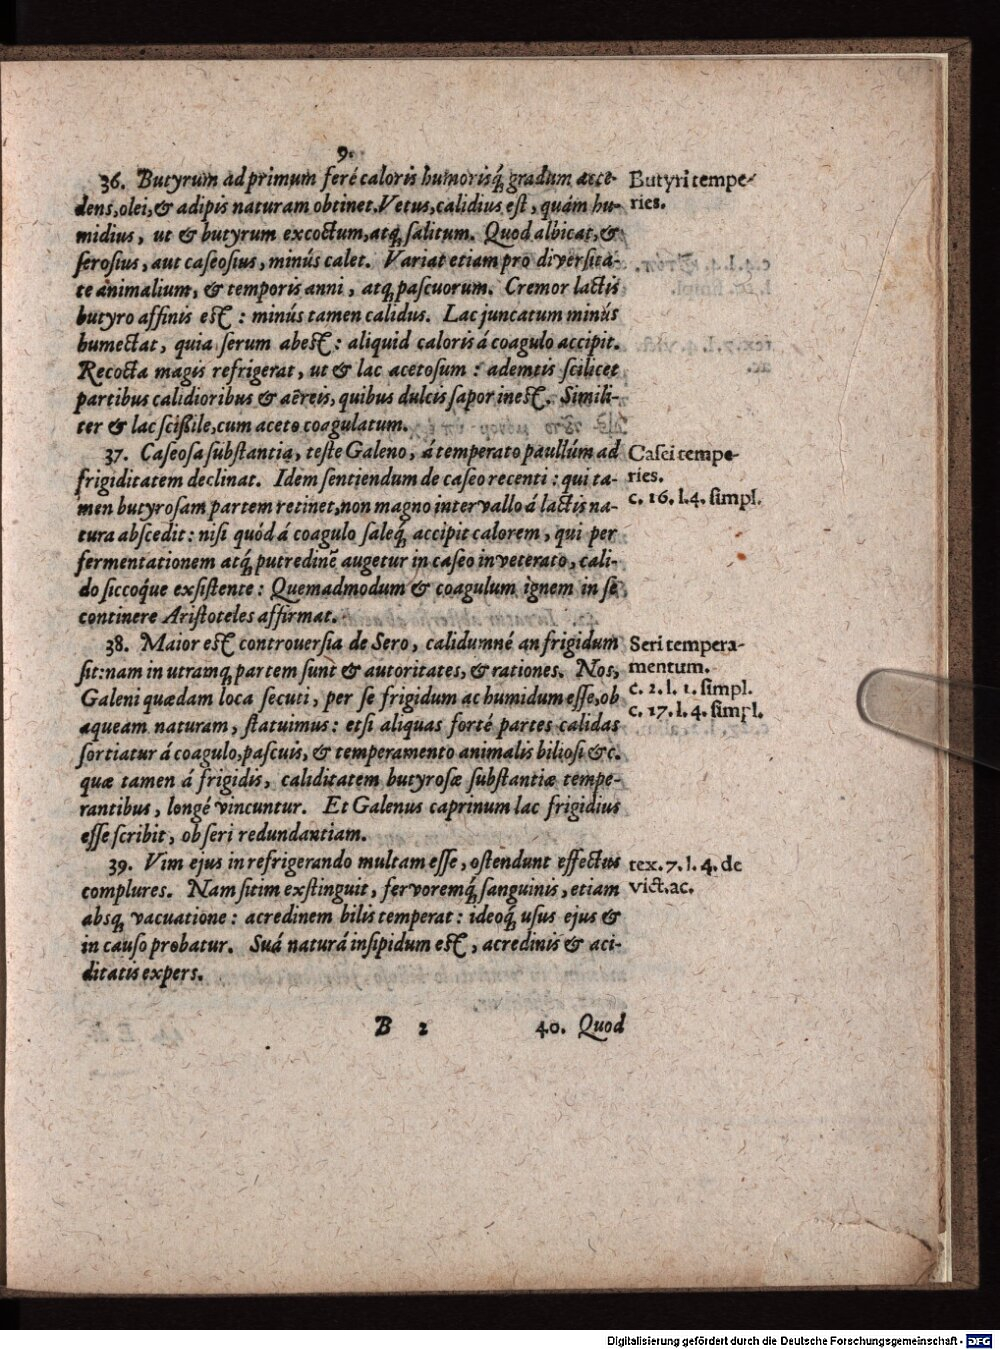 9.
36. Butyrum ad primum feré caloris humorisq́; gradum acce-
dens, olei, & adipis naturam obtinet. Vetus, calidius est, quám hu-
midius, ut & butyrum excoctum, atq; salitum. Quod albicat, &
serosius, aut caseosius, minús calet. Variat etiam pro diversita-
te animalium, & temporis anni, atq; pascuorum. Cremor lactis
butyro affinis est: minús tamen calidus. Lac juncatum minús
humectat, quia serum abest: aliquid caloris á coagulo accipit.
Recocta magis refrigerat, ut & lac acetosum: ademtis scilicet
partibus calidioribus & aëreis, quibus dulcis sapor inest. Simili-
ter & lac scißile, cum aceto coagulatum.
Butyri tempe-
ries.
37. Caseosa substantia, teste Galeno, á temperato paullúm ad
frigiditatem declinat. Idem sentiendum de caseo recenti: qui ta-
men butyrosam partem retinet, non magno intervallo á lactis na-
tura abscedit: nisi quód á coagulo saleq́; accipit calorem, qui per
fermentationem atq; putredinẽ augetur in caseo inveterato, cali-
do siccoq́ue exsistente: Quemadmodum & coagulum ignem in se
continere Aristoteles affirmat.
Casei tempe-
ries.
c. 16. l.4. simpl.
38. Maior est controuersia de Sero, calidumné an frigidum
sit: nam in utramq; partem sunt & autoritates, & rationes. Nos,
Galeni quædam loca secuti, per se frigidum ac humidum esse, ob
aqueam naturam, statuimus: etsi aliquas forté partes calidas
sortiatur á coagulo, pascuis, & temperamento animalis biliosi &c.
quæ tamen á frigidis, caliditatem butyrosæ substantiæ tempe-
rantibus, longé vincuntur. Et Galenus caprinum lac frigidius
esse scribit, ob seri redundantiam.
Seri tempera-
mentum.
c. 2. l. 1. simpl.
c. 17. l. 4. simpl.
39. Vim ejus in refrigerando multam esse, ostendunt effectus
complures. Nam sitim exstinguit, fervoremq́; sanguinis, etiam
absq; vacuatione: acredinem bilis temperat: ideoq́; usus ejus &
in causo probatur. Suá naturá insipidum est, acredinis & aci-
ditatis expers.
tex. 7. l. 4. de
vict. ac.
B 2
40. Quod
Digitalisierung gefördert durch die Deutsche Forschungsgemeinschaft - DFG